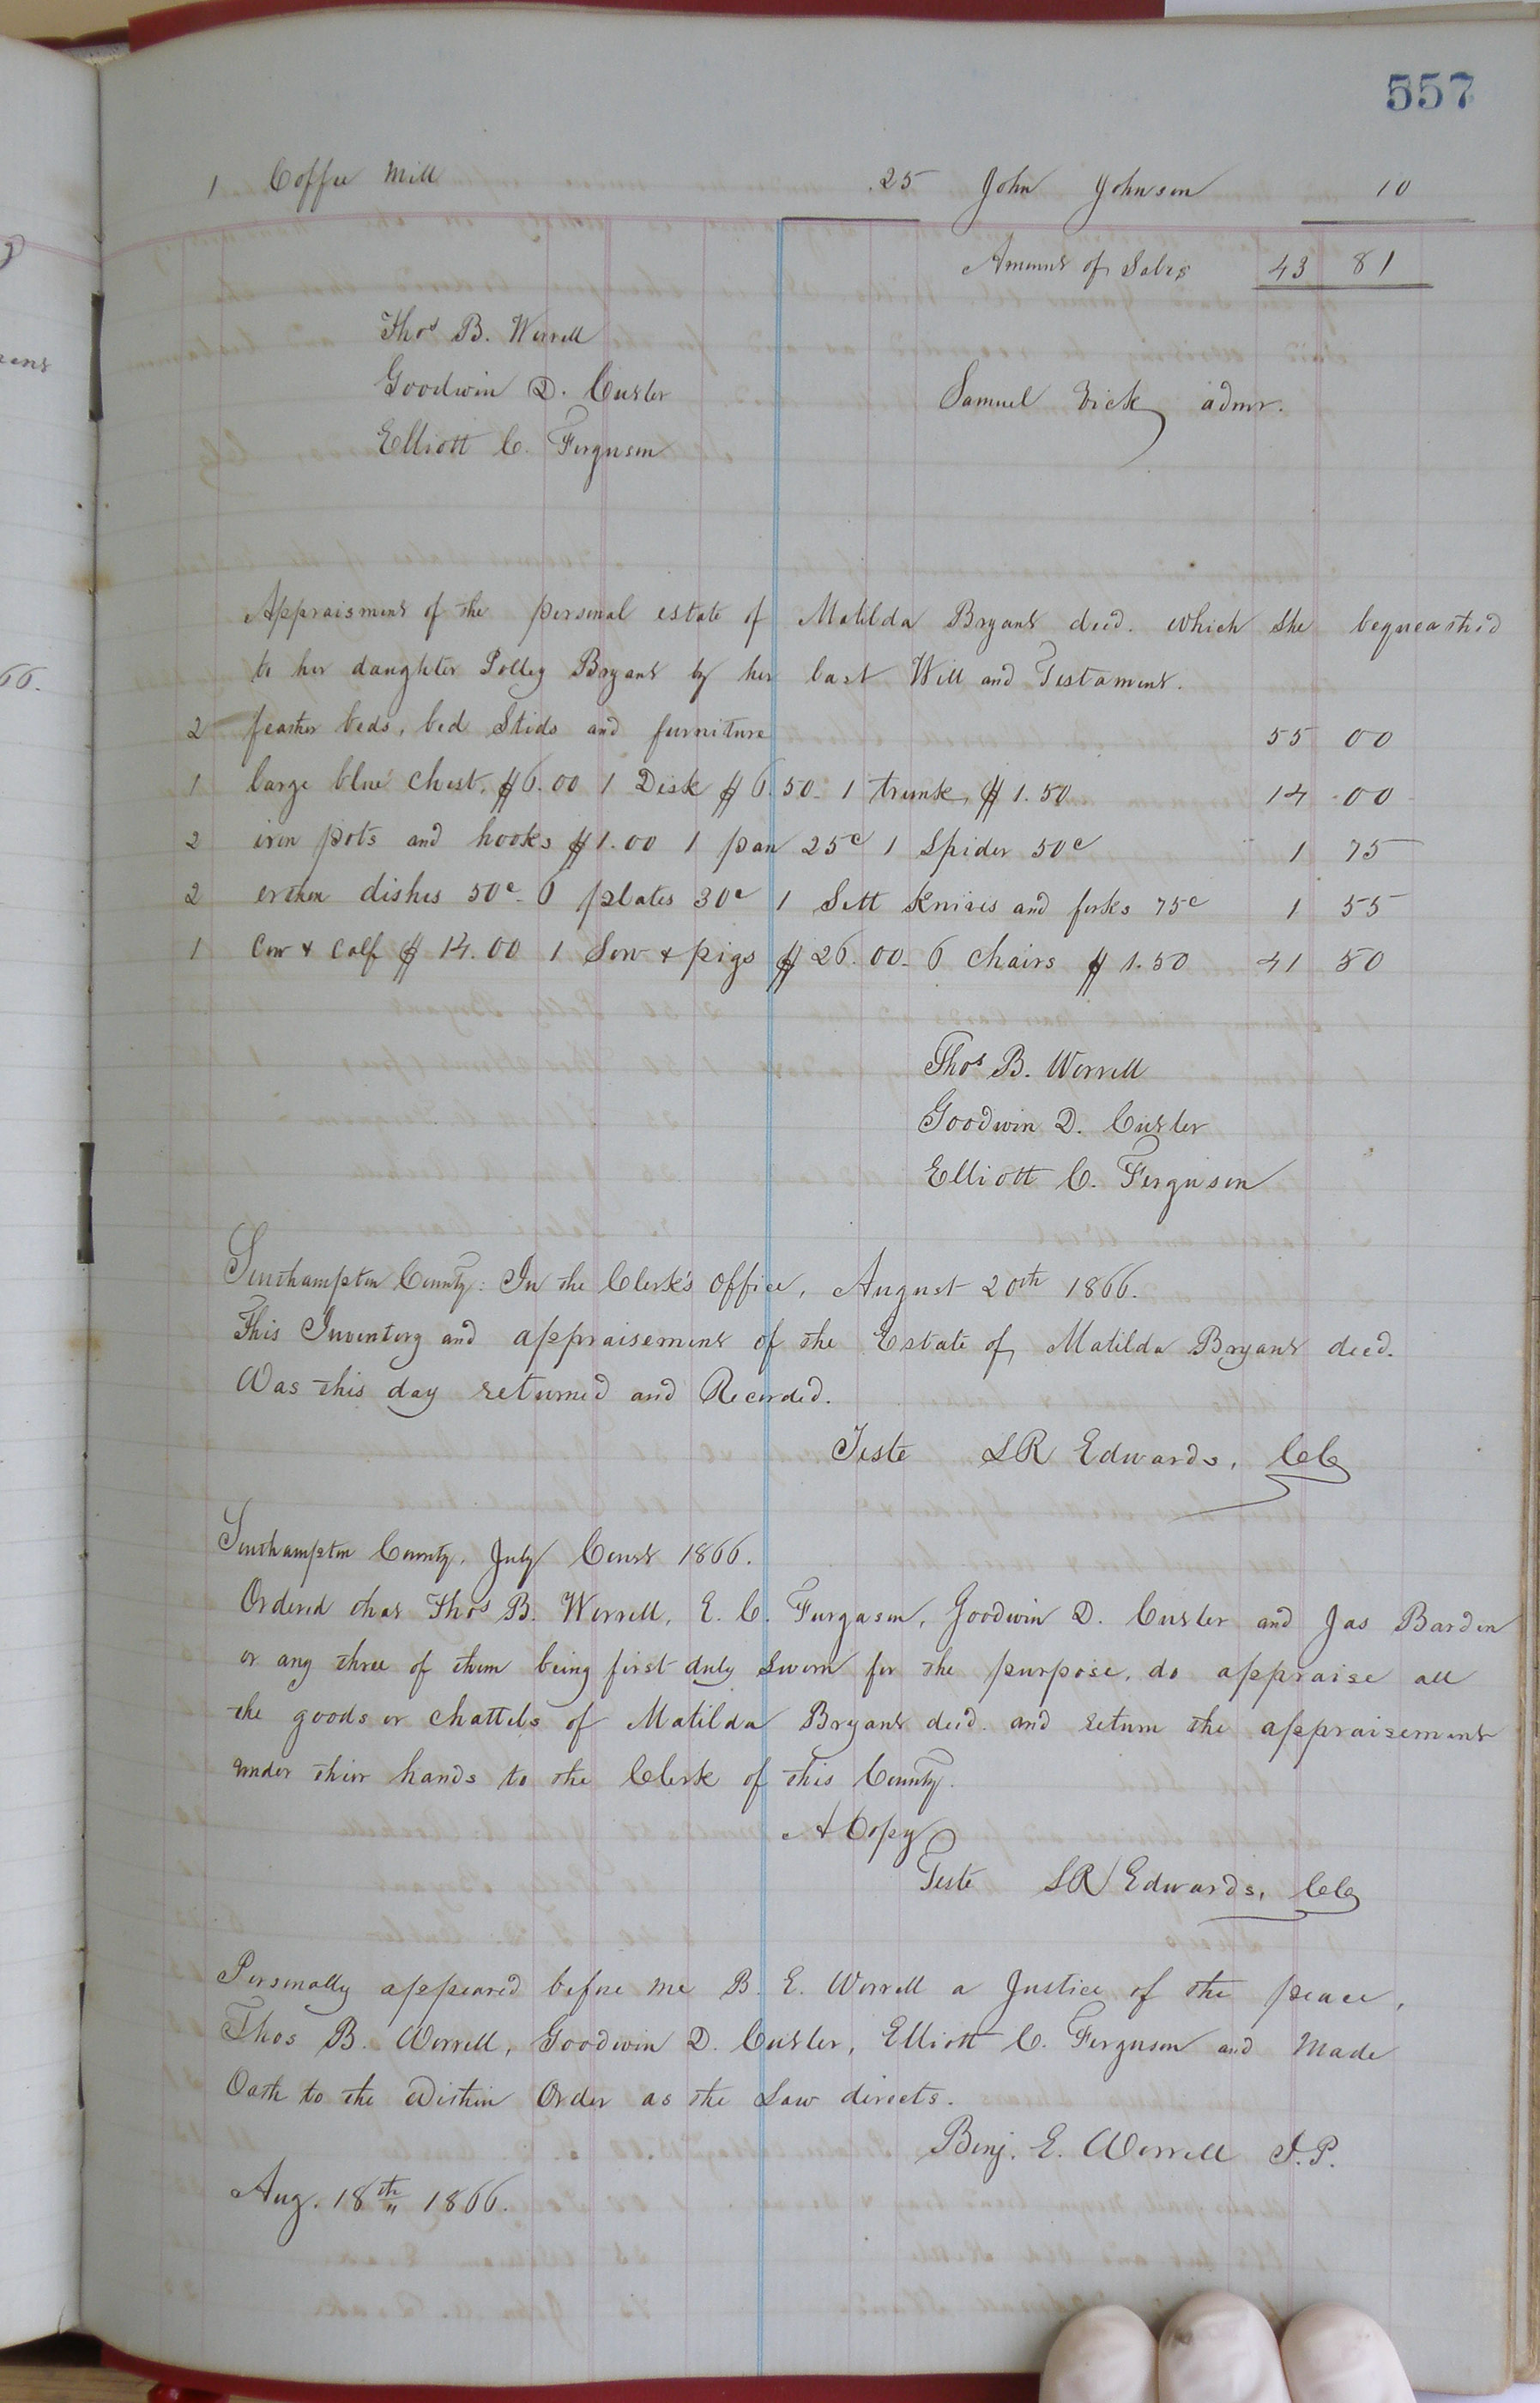 557
1 Coffee Mill .25 John Johnson 10
Amount of Sales 43 81
Thos B. Worrell
Goodwin D. Cutler
Samuel Vick admr.
Elliott C. Ferguson
Appraisment of the personal estate of Matilda Bryant decd. which she bequeathed
to her daughter Polley Bryant by her last Will and Testament.
2 feather beds, bed Steds and furniture 55 00
1 large blue Chest. $6.00 1 Desk $6.50 1 trunk, $1.50 14 00
2 iron pots and hooks $1.00 1 pan 25c 1 Spider 50c 1 75
2 erthen dishes 50c 6 plates 30c 1 Sett Knives and forks 75c 1 55
1 Cow & Calf $14.00 1 Sow & pigs $26.00 6 chairs $1.50 41 50
Thos B. Worrell
Goodwin D. Cutler
Elliott C. Ferguson
Southampton County: In the Clerk's Office, August 20th 1866.
This Inventory and appraisement of the Estate of Matilda Bryant decd.
Was this day returned and Recorded.
Teste LR Edwards, CC
Southampton County, July Court 1866.
Ordered that Thos B. Worrell, E. C. Furgason, Goodwin D. Cutler and Jas Barden
or any three of them being first duly Sworn for the purpose, do appraise all
the goods or chattels of Matilda Bryant decd. and return the appraisement
under their hands to the Clerk of this County.
A Copy
Teste LR Edwards, CC
Personally appeared before me B. E. Worrell a Justice of the peace,
Thos B. Worrell, Goodwin D. Cutler, Elliott C. Ferguson and Made
Oath to the Within Order as the Law directs.
Benj. E. Worrell J.P.
Aug. 18th 1866.